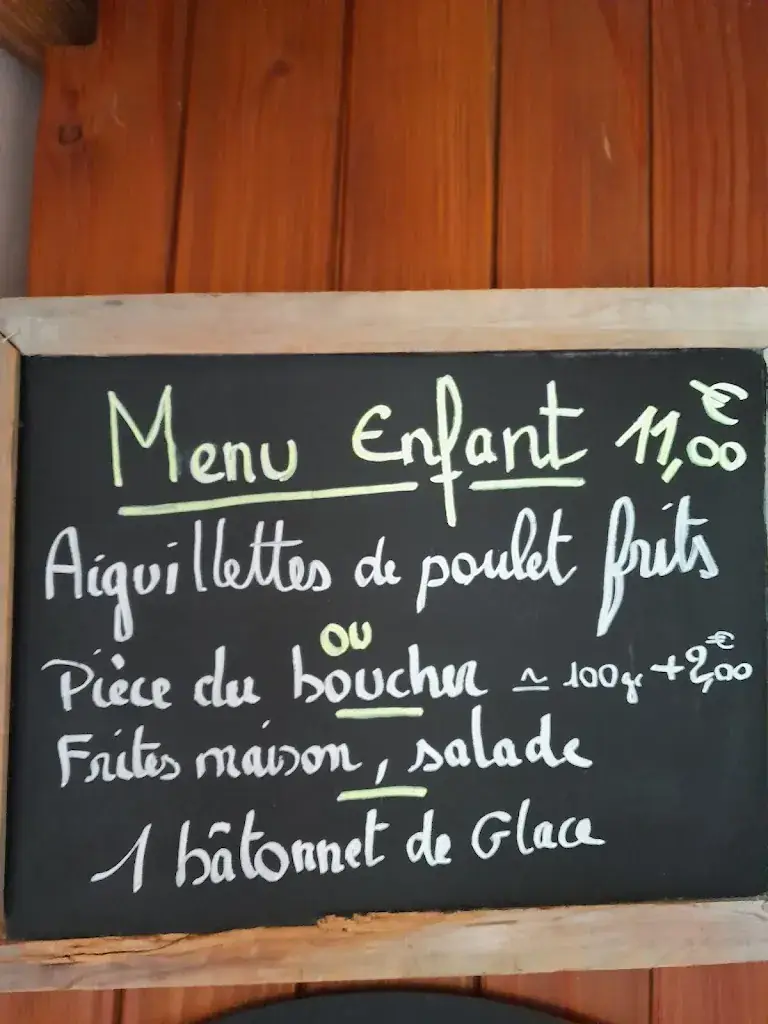 Menu Enfant 11,00€
Aiguillettes de poulet frits
ou
Pièce du boucher ≃ 100gr +2,00€
Frites maison, salade
1 bâtonnet de Glace